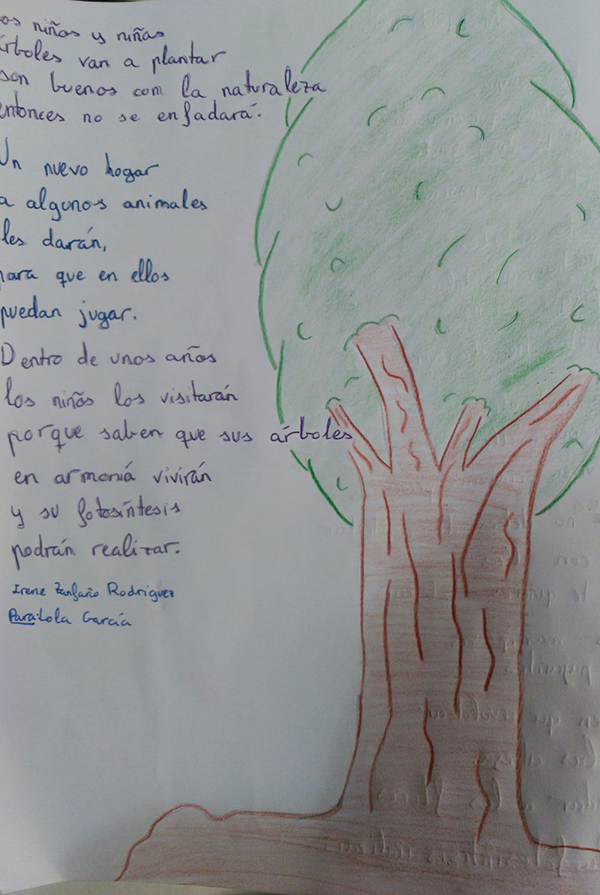 os niños y niñas
árboles van a plantar
son buenos com la naturaleza
entonces no se enfadará.
Un nuevo hogar
a algunos animales
les darán,
para que en ellos
puedan jugar.
Dentro de unos años
los niños los visitarán
porque saben que sus árboles
en armoniá vivirán
y su fotosíntesis
podrán realizar.
Irene Zanfaño Rodríguez
Para: Lola García